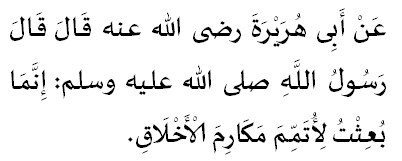 عَنْ أَبِى هُرَيْرَةَ رضى الله عنه قَالَ قَالَ
رَسُولُ اللَّهِ صلى الله عليه وسلم: إِنَّمَا
بُعِثْتُ لِأُتَمِّمَ مَكَارِمَ الْأَخْلَاقِ.